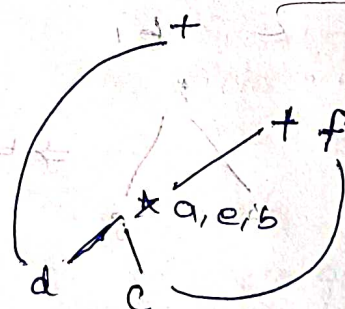 +
+ f
* a, e, b
d
c